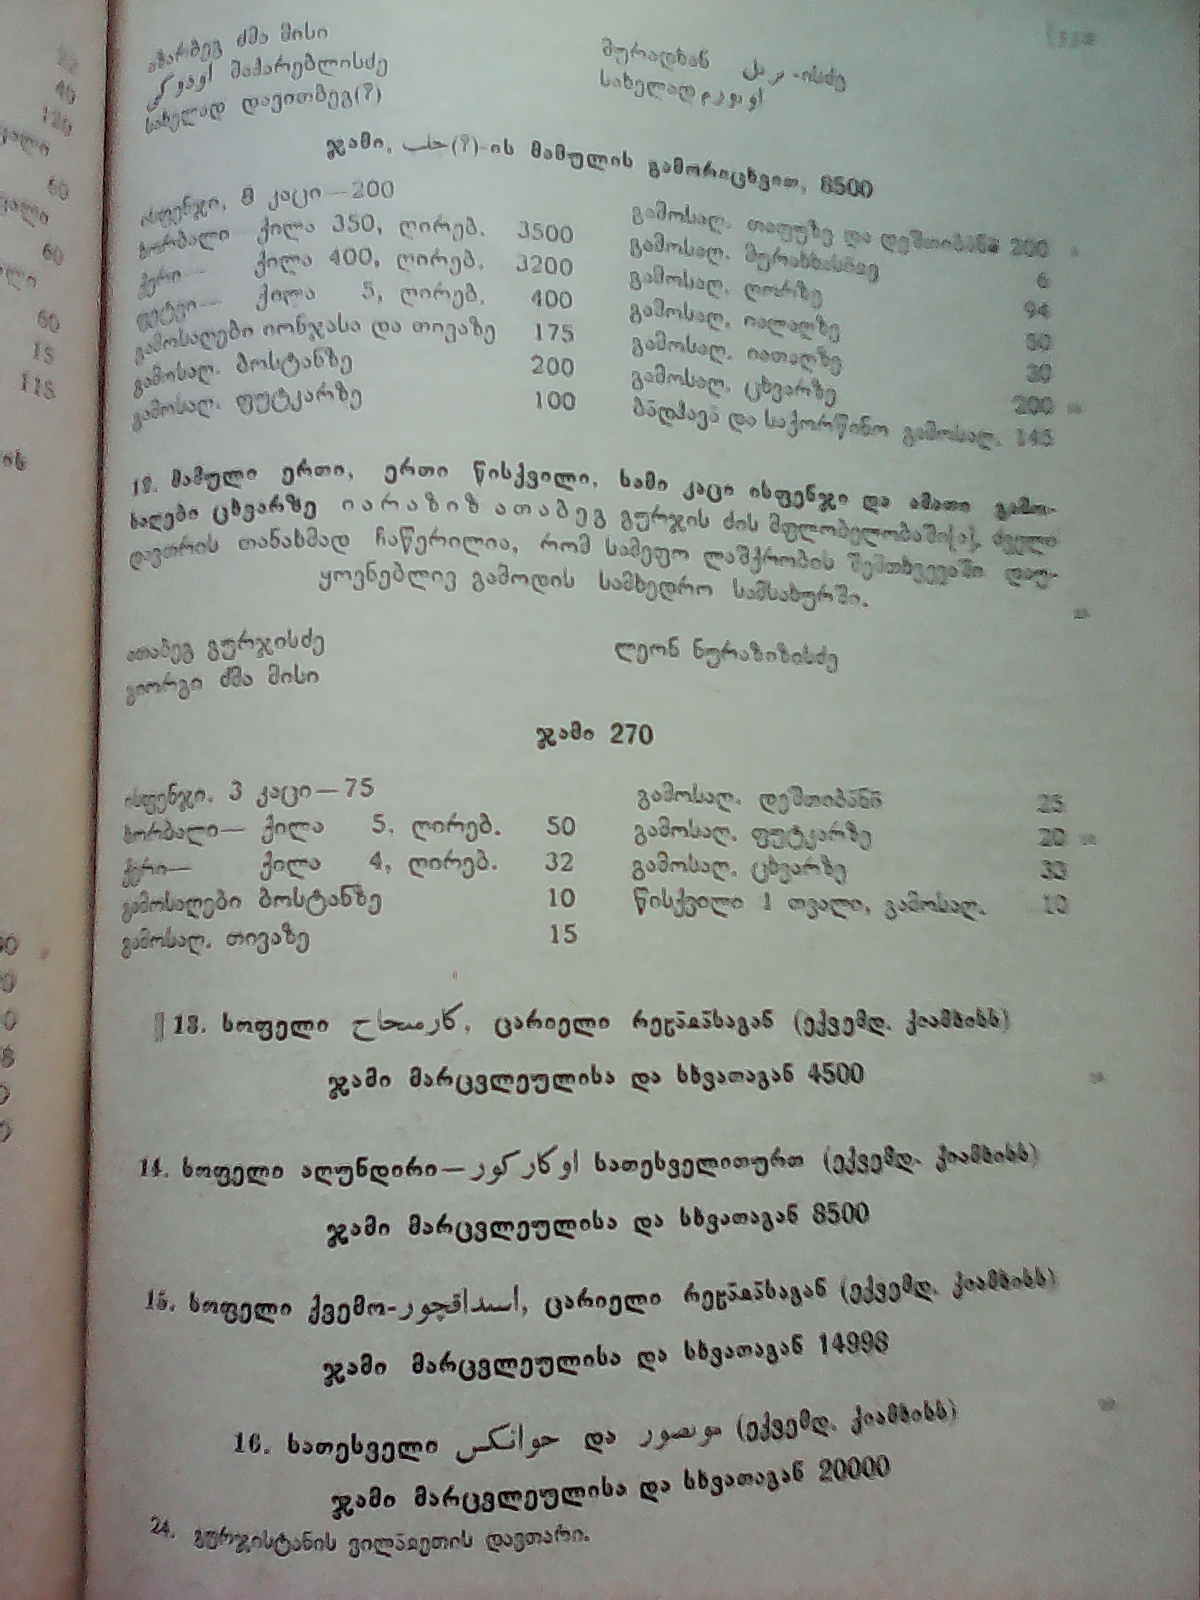 ამარბეგ ძმა მისი
მურადხან -ისძე
მაქარებლისძე
სახელად
სახელად დავითბეგ(?)
ჯამი, حلب (?)-ის მამულის გამორიცხვით, 8500
ისფენჯი, 8 კაცი—200
ხორბალი ქილა 350, ღირებ. 3500
ქერი— ქილა 400, ღირებ. 3200
ფეტვი— ქილა 5, ღირებ. 400
გამოსაღები იონჯასა და თივაზე 175
გამოსაღ. ბოსტანზე 200
გამოსაღ. ფუტკარზე 100
გამოსაღ. თაფუზე და დეშთიბანზე 200
გამოსაღ. 6
გამოსაღ. ღორზე 94
გამოსაღ. იალაღზე 50
გამოსაღ. იათაღზე 30
გამოსაღ. ცხვარზე 200
ბადჰავა და საქორწინო გამოსაღ. 145
12. მამული ერთი, ერთი წისქვილი, სამი კაცი ისფენჯი და ამათი გამო-
საღები ცხვარზე იარაზიზ ათაბეგ გურჯის ძის მფლობელობაში[ა]. ძველი
დავთრის თანახმად ჩაწერილია, რომ სამეფო ლაშქრობის შემთხვევაში დაუ-
ყოვნებლივ გამოდის სამხედრო სამსახურში.
ათაბეგ გურჯისძე
ლეონ ნურაზიზისძე
გიორგი ძმა მისი
ჯამი 270
ისფენჯი, 3 კაცი—75
ხორბალი— ქილა 5, ღირებ. 50
ქერი— ქილა 4, ღირებ. 32
გამოსაღები ბოსტანზე 10
გამოსაღ. თივაზე 15
გამოსაღ. დეშთიბანი 25
გამოსაღ. ფუტკარზე 20
გამოსაღ. ცხვარზე 33
წისქვილი 1 თვალი, გამოსაღ. 10
|| 13. სოფელი , ცარიელი რეჲასაგან (ექვემდ. ქიამხისს)
ჯამი მარცვლეულისა და სხვათაგან 4500
14. სოფელი აღუნდირი— او كار كور სათესველითურთ (ექვემდ. ქიამხისს)
ჯამი მარცვლეულისა და სხვათაგან 8500
15. სოფელი ქვემო- , ცარიელი რეჲასაგან (ექვემდ. ქიამხისს)
ჯამი მარცვლეულისა და სხვათაგან 14998
16. სათესველი حوانكس და (ექვემდ. ქიამხისს)
ჯამი მარცვლეულისა და სხვათაგან 20000
24. გურჯისტანის ვილაეთის დავთარი.